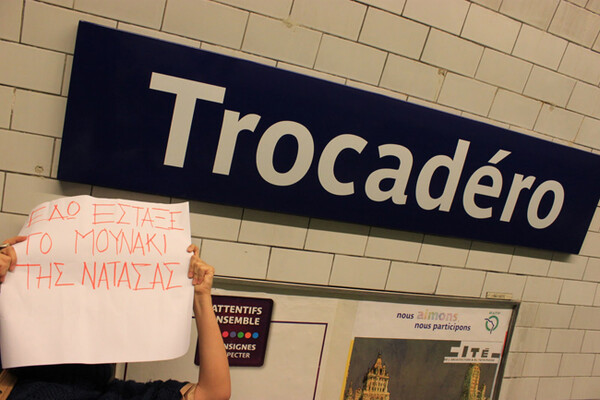 Trocadéro
ΕΔΩ ΕΣΤΑΞΕ
ΤΟ ΜΟΥΝΑΚΙ
ΤΗΣ ΝΑΤΑΣΑΣ
ATTENTIFS
ENSEMBLE
nous aimons
nous participons
CITÉ